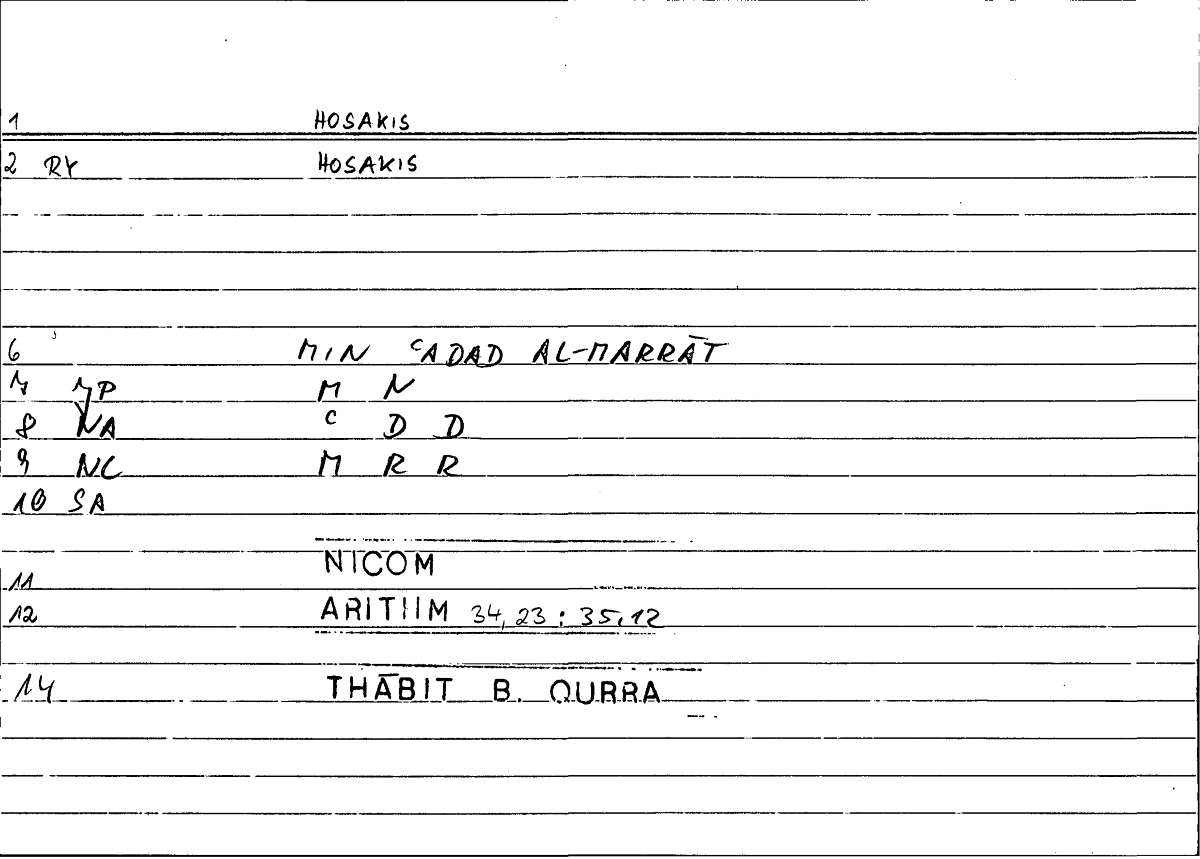 1 HOSAKIS
2 RY HOSAKIS
6 MIN ᶜADAD AL-MARRĀT
7 7P M N
8 NA ᶜ D D
9 NC M R R
10 SA
11 NICOM
12 ARITHM 34,23 : 35,12
14 THĀBIT B. QURRA